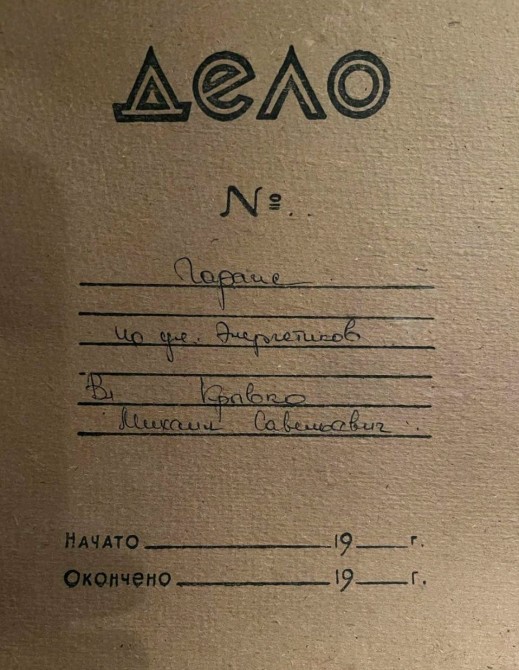 Дело
№..
Гараж
по ул. Энергетиков
Вл Крывко
Михаил Савельевич
Начато 19 г.
Окончено 19 г.